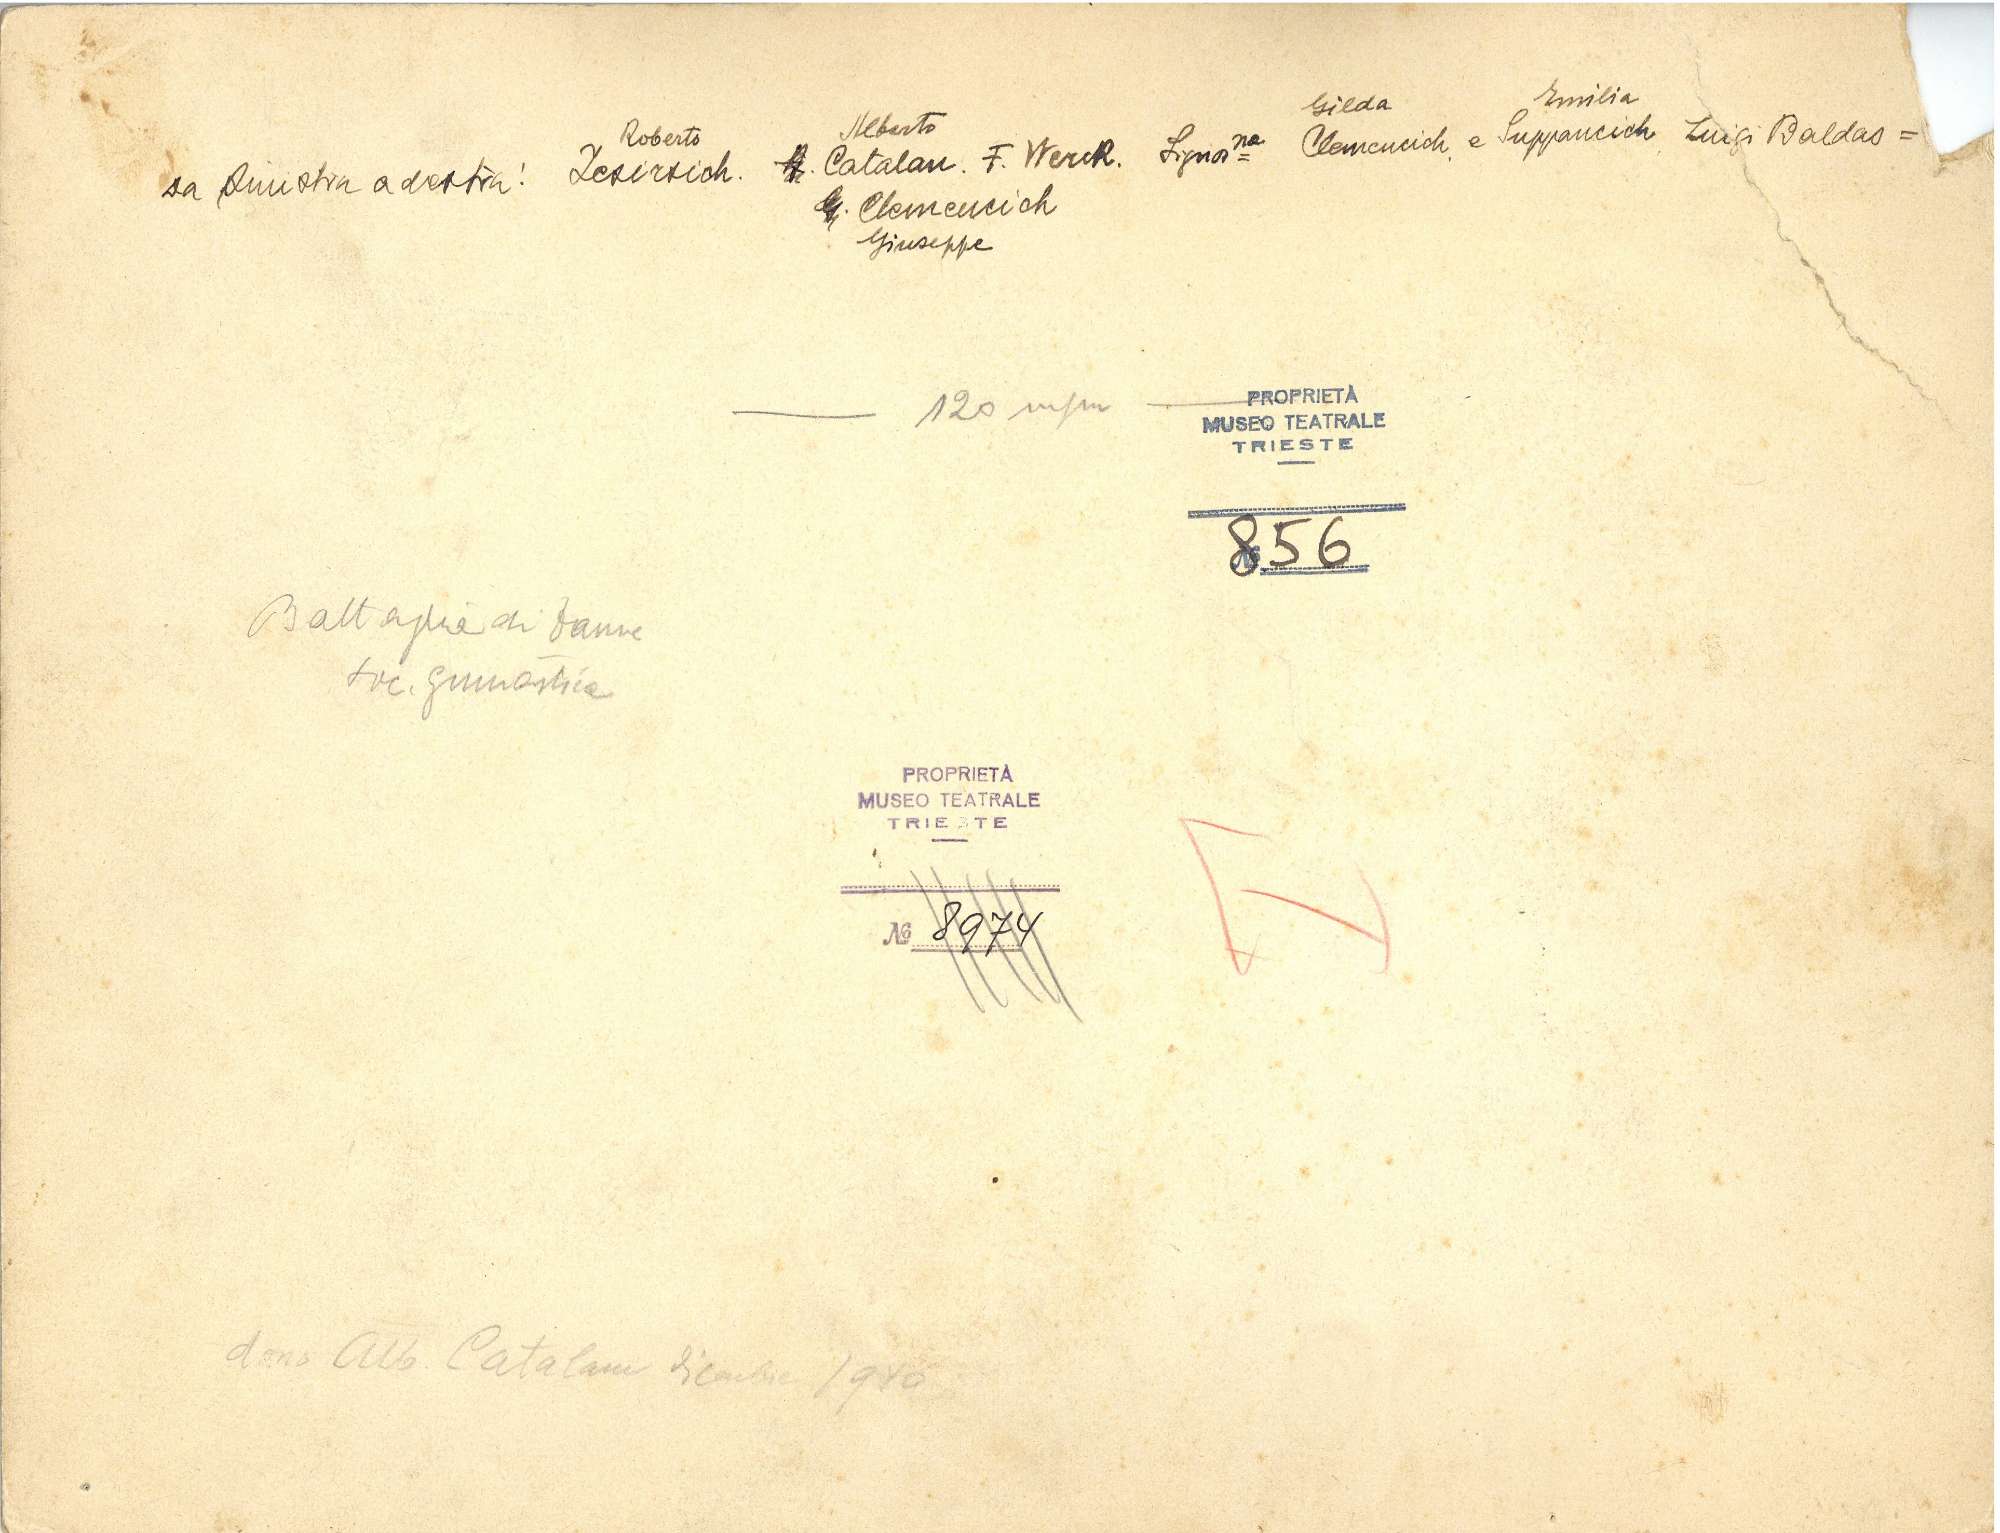 Roberto Alberto Gilda Emilia
da sinistra a destra: Zesirsich. A. Catalan. F. Werk. Signor.ne Clemencich, e Suppancich, Luigi Baldas=
G. Clemencich
Giuseppe
120 m/m
PROPRIETÀ
MUSEO TEATRALE
TRIESTE
№ 856
Battaglia di Dame
Soc. Ginnastica
PROPRIETÀ
MUSEO TEATRALE
TRIESTE
№ 8974
dono Alb. Catalan dicembre